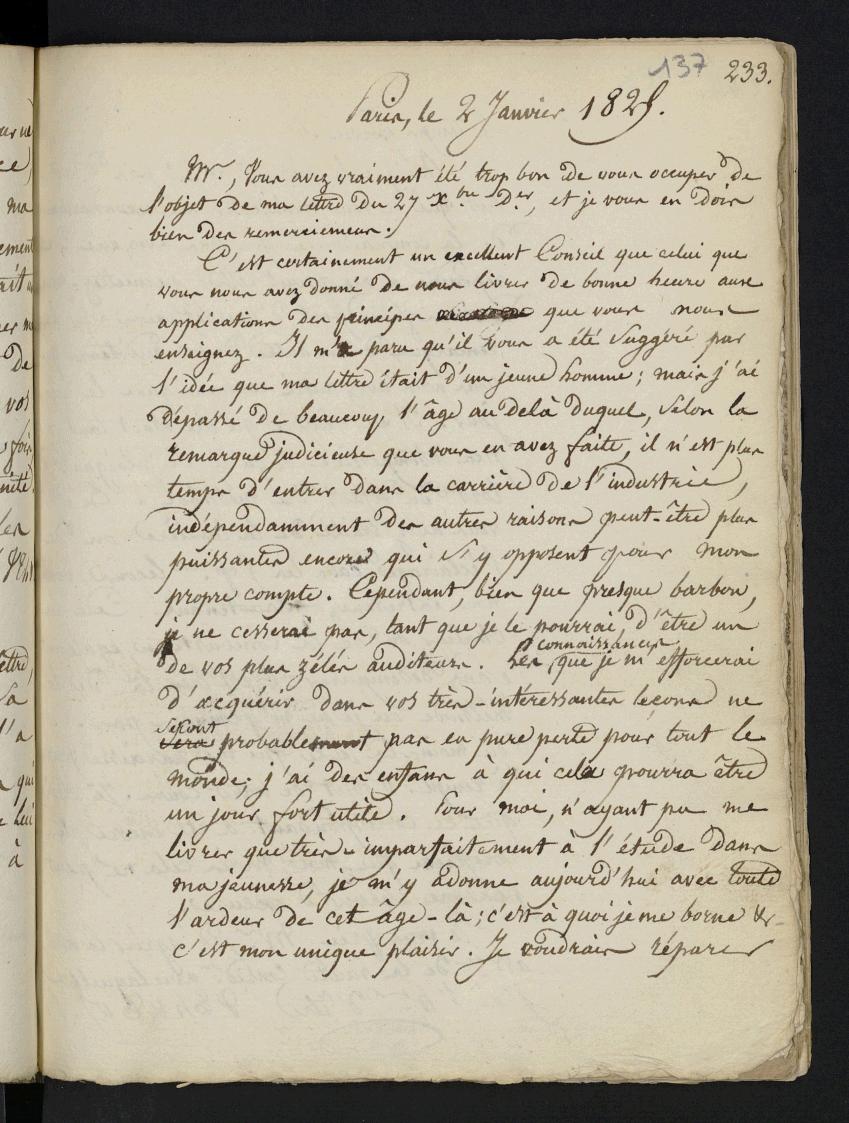 137 233.
Paris, le 2 Janvier 1825.
Mr., Vous avez vraiment été trop bon de vous occuper de
l'objet de ma lettre du 27 Xbre Der, et je vous en dois
bien des remerciemens.
C'est certainement un excellent Conseil que celui que
vous nous avez donné de nous livrer de bonne heure aux
applications des principes que vous nous
enseignez. Il m'a paru qu'il vous a été suggéré par
l'idée que ma lettre était d'un jeune homme; mais j'ai
dépassé de beaucoup l'âge au delà duquel, selon la
remarque judicieuse que vous en avez faite, il n'est plus
temps d'entrer dans la carrière de l'industrie,
indépendamment des autres raisons peut-être plus
puissantes encore qui s'y opposent pour mon
propre compte. Cependant, bien que presque barbon,
je ne cesserai pas, tant que je le pourrai, d'être un
de vos plus zélés auditeurs. Les connaissances que je m'efforcerai
d'acquérir dans vos très-intéressantes leçons ne
seront probablement pas en pure perte pour tout le
monde; j'ai des enfans à qui cela pourra être
un jour fort utile. Pour moi, n'ayant pu me
livrer que très-imparfaitement à l'étude dans
ma jeunesse, je m'y adonne aujourd'hui avec toute
l'ardeur de cet âge-là; c'est à quoi je me borne &
c'est mon unique plaisir. Je voudrais réparer